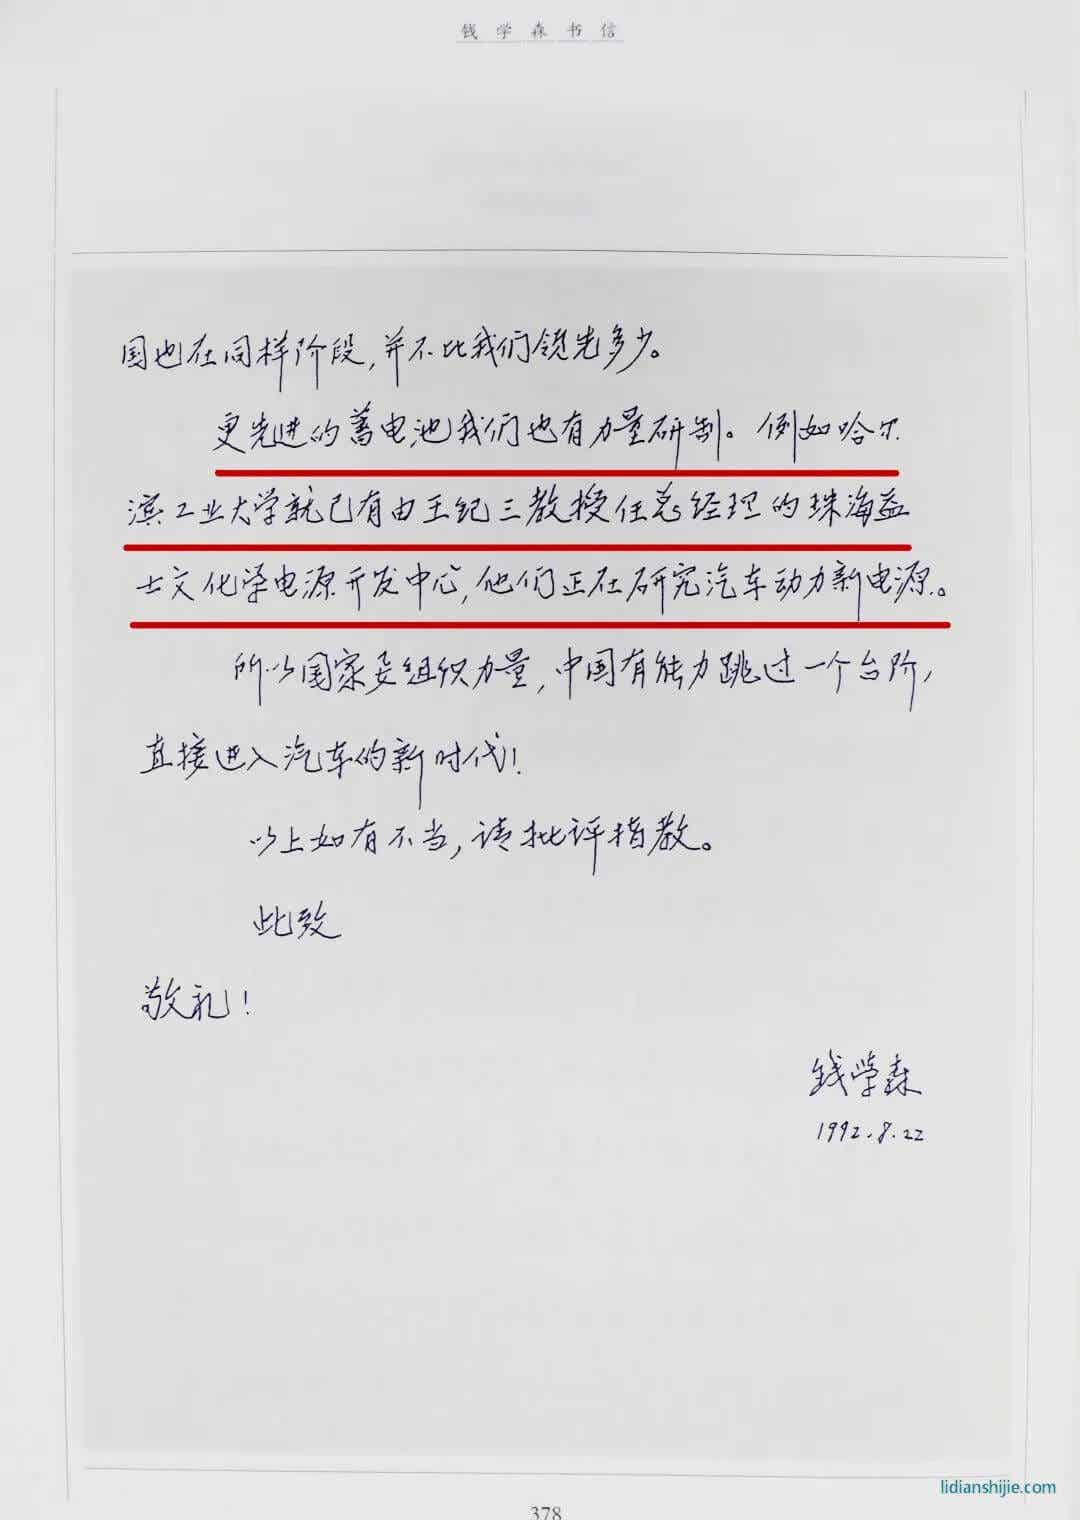 钱学森书信
国也在同样阶段,并不比我们领先多少。
更先进的蓄电池我们也有力量研制。例如哈尔
滨工业大学就已有由王纪三教授任总经理的珠海益
士文化学电源开发中心,他们正在研究汽车动力新电源。
所以国家要组织力量,中国有能力跳过一个台阶,
直接进入汽车的新时代!
以上如有不当,请批评指教。
此致
敬礼!
钱学森
1992.8.22
lidianshijie.com
378